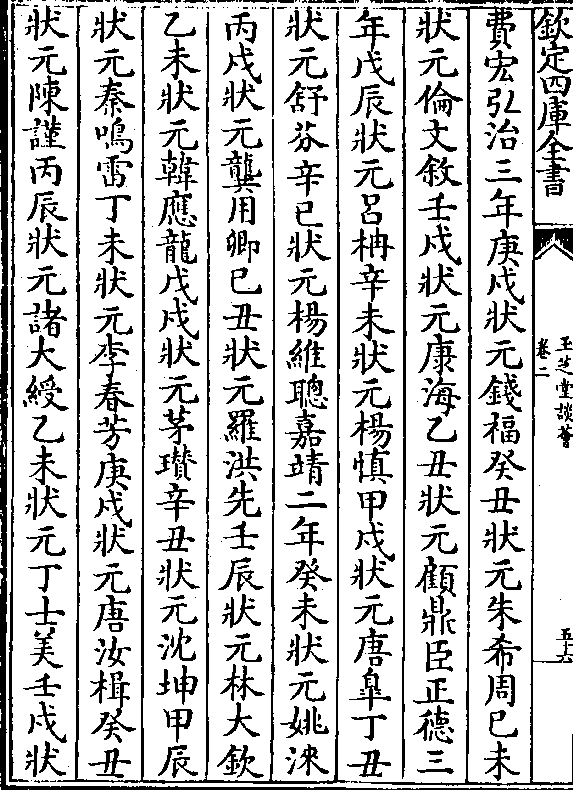 欽定四庫全書
玉芝堂談薈
卷二
五十六
費宏弘治三年庚戌狀元錢福癸丑狀元朱希周己未
狀元倫文敘壬戌狀元康海乙丑狀元顧鼎臣正德三
年戊辰狀元呂柟辛未狀元楊慎甲戌狀元唐皐丁丑
狀元舒芬辛巳狀元楊維聰嘉靖二年癸未狀元姚淶
丙戌狀元龔用卿巳丑狀元羅洪先壬辰狀元林大欽
乙未狀元韓應龍戊戌狀元茅瓚辛丑狀元沈坤甲辰
狀元秦鳴雷丁未狀元李春芳庚戌狀元唐汝楫癸丑
狀元陳謹丙辰狀元諸大綬乙未狀元丁士美壬戌狀